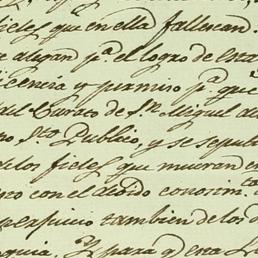 fieles que en ella fallescan.
e alegan pa. el logro de esta
licencia y permiso pa. que
del Curato de Sn. Miguel de
Publico, y se sepult
de los fieles que mueran e
con el devido conocim.to
perjuicio tambien de los d
quia, Y para qe esta